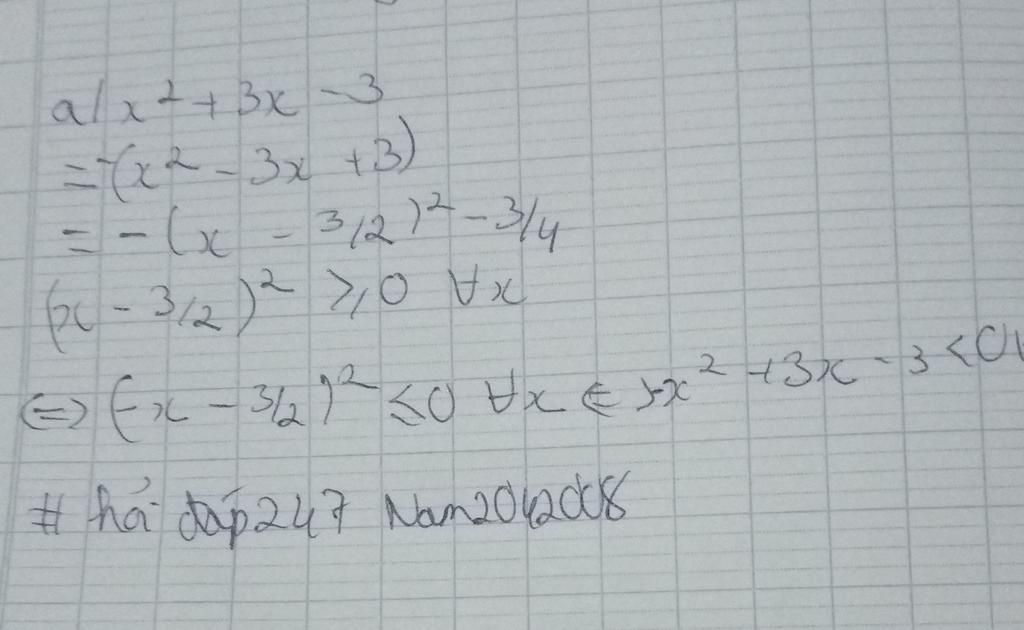 a/ x² + 3x - 3
= -(x² - 3x + 3)
= - (x - 3/2)² - 3/4
(x - 3/2)² ≥ 0 ∀x
⇔ (-x - 3/2)² ≤ 0 ∀x ⇔ -x² + 3x - 3 < 0
# hỏi đáp 247 Nam2042008